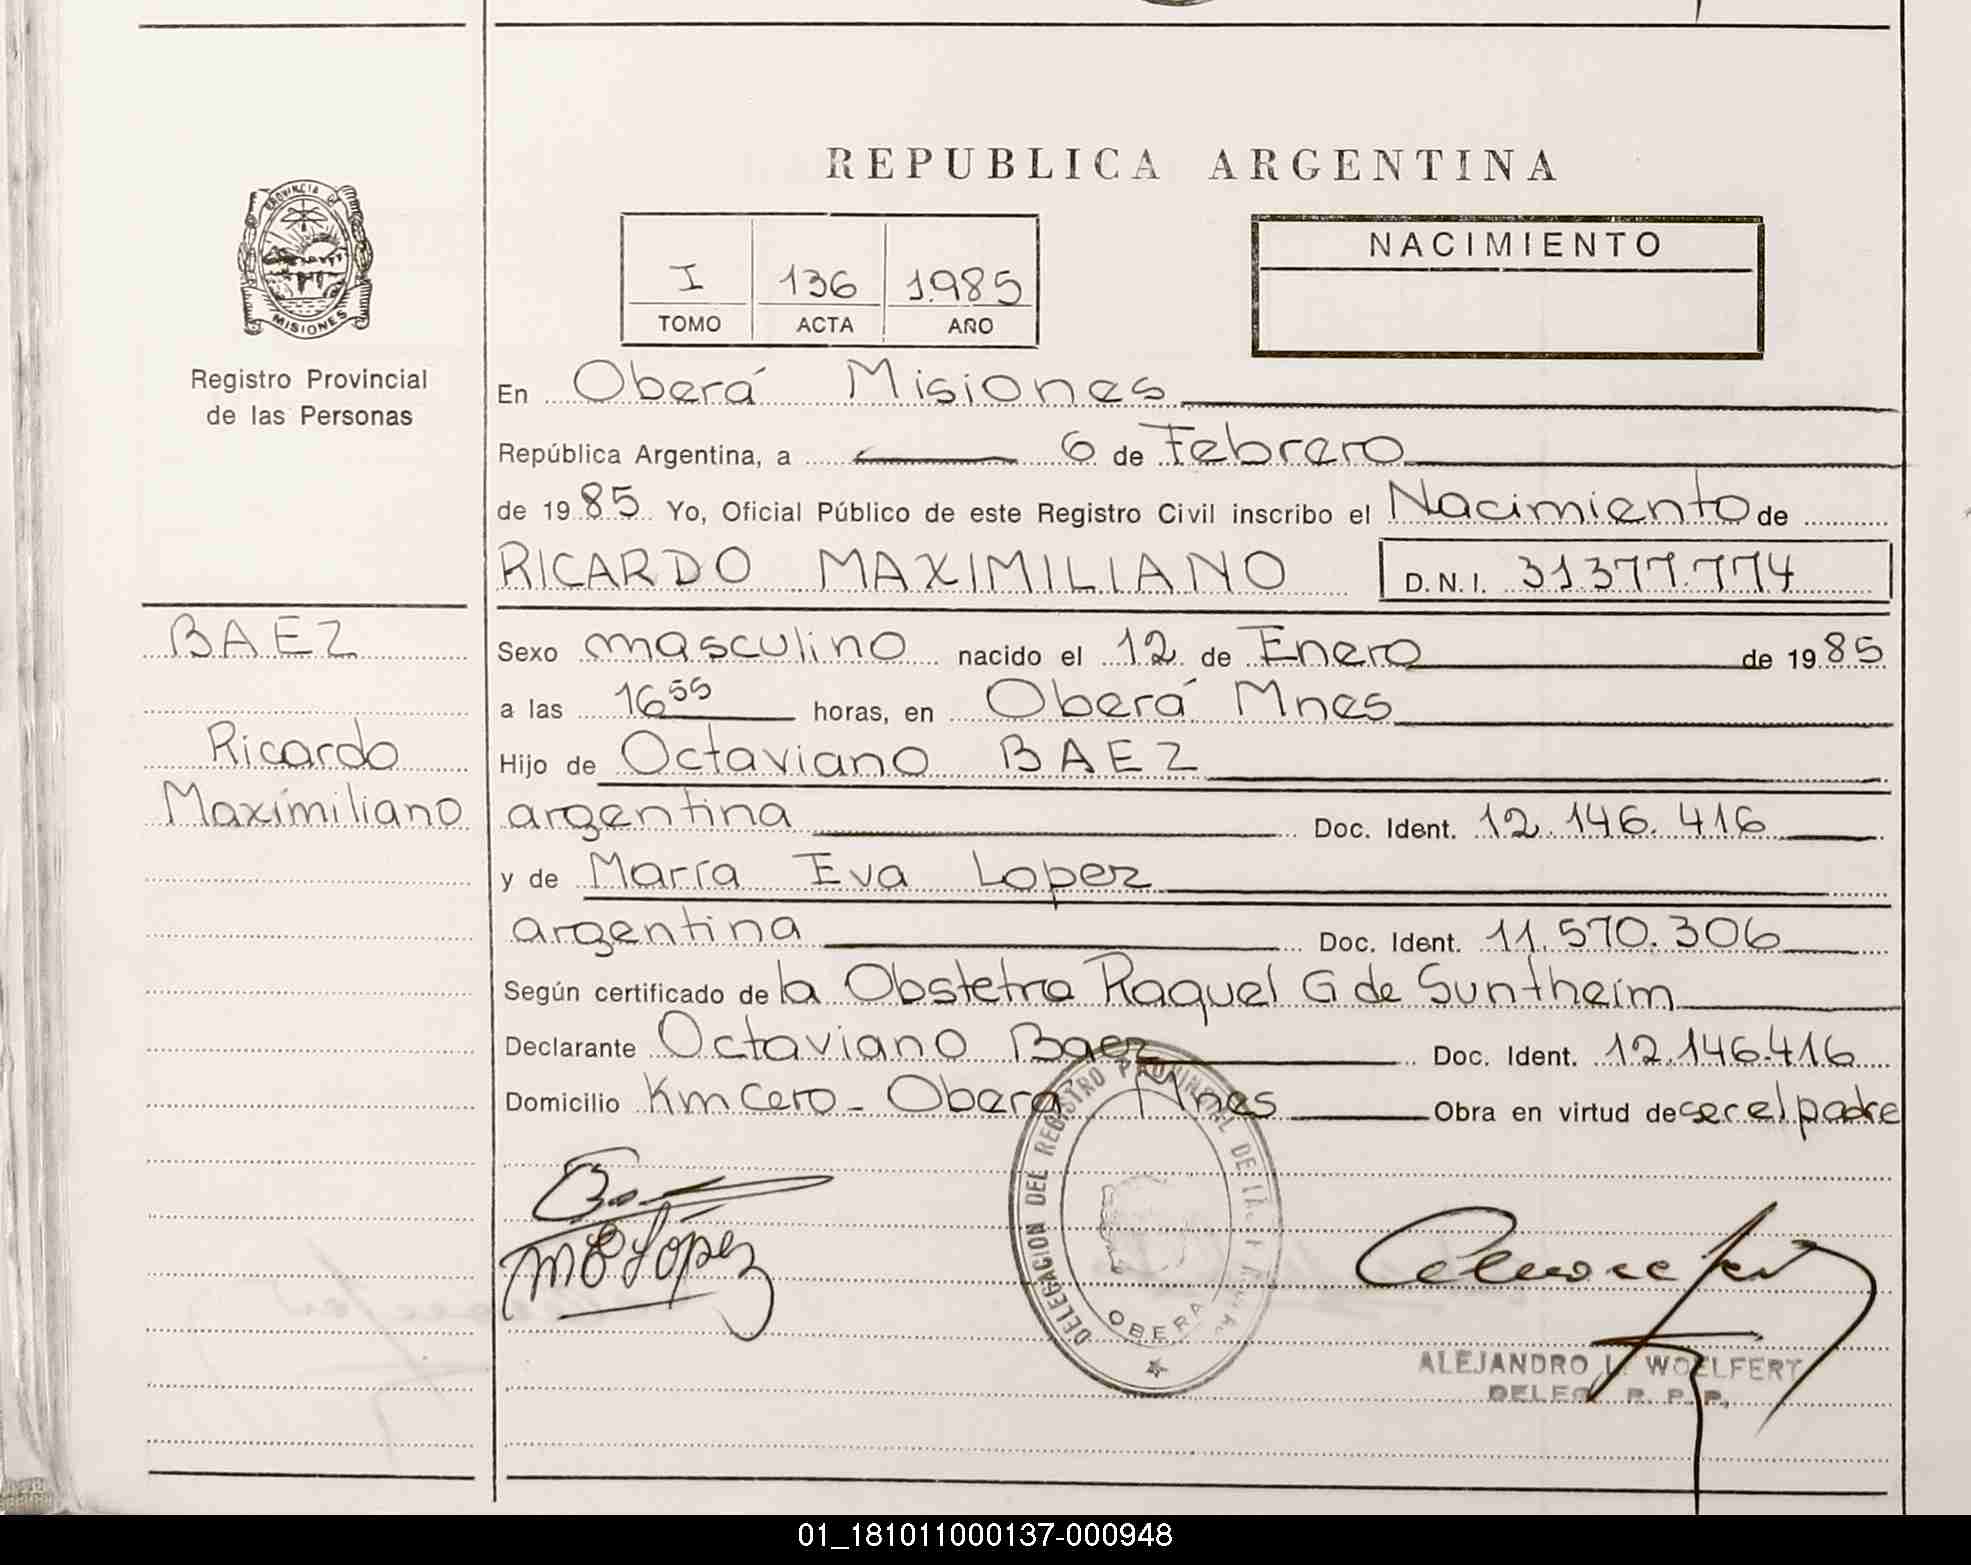 REPUBLICA ARGENTINA
PROVINCIA DE
MISIONES
Registro Provincial
de las Personas
I 136 1985
TOMO ACTA AÑO
NACIMIENTO
En Oberá Misiones
República Argentina, a 6 de Febrero
de 1985 Yo, Oficial Público de este Registro Civil inscribo el Nacimiento de
RICARDO MAXIMILIANO D.N.I. 31.377.774
BAEZ
Ricardo
Maximiliano
Sexo masculino nacido el 12 de Enero de 1985
a las 16 55 horas, en Oberá Mnes
Hijo de Octaviano BAEZ
argentina Doc. Ident. 12.146.416
y de María Eva Lopez
argentina Doc. Ident. 11.570.306
Según certificado de la Obstetra Raquel G de Suntheim
Declarante Octaviano Baez Doc. Ident. 12.146.416
Domicilio Km Cero - Oberá Mnes Obra en virtud de ser el padre
M E López
DELEGACION DEL REGISTRO PROVINCIAL DE LAS
OBERA
ALEJANDRO L. WOELFERT
DELEG. R. P. P.
01_181011000137-000948